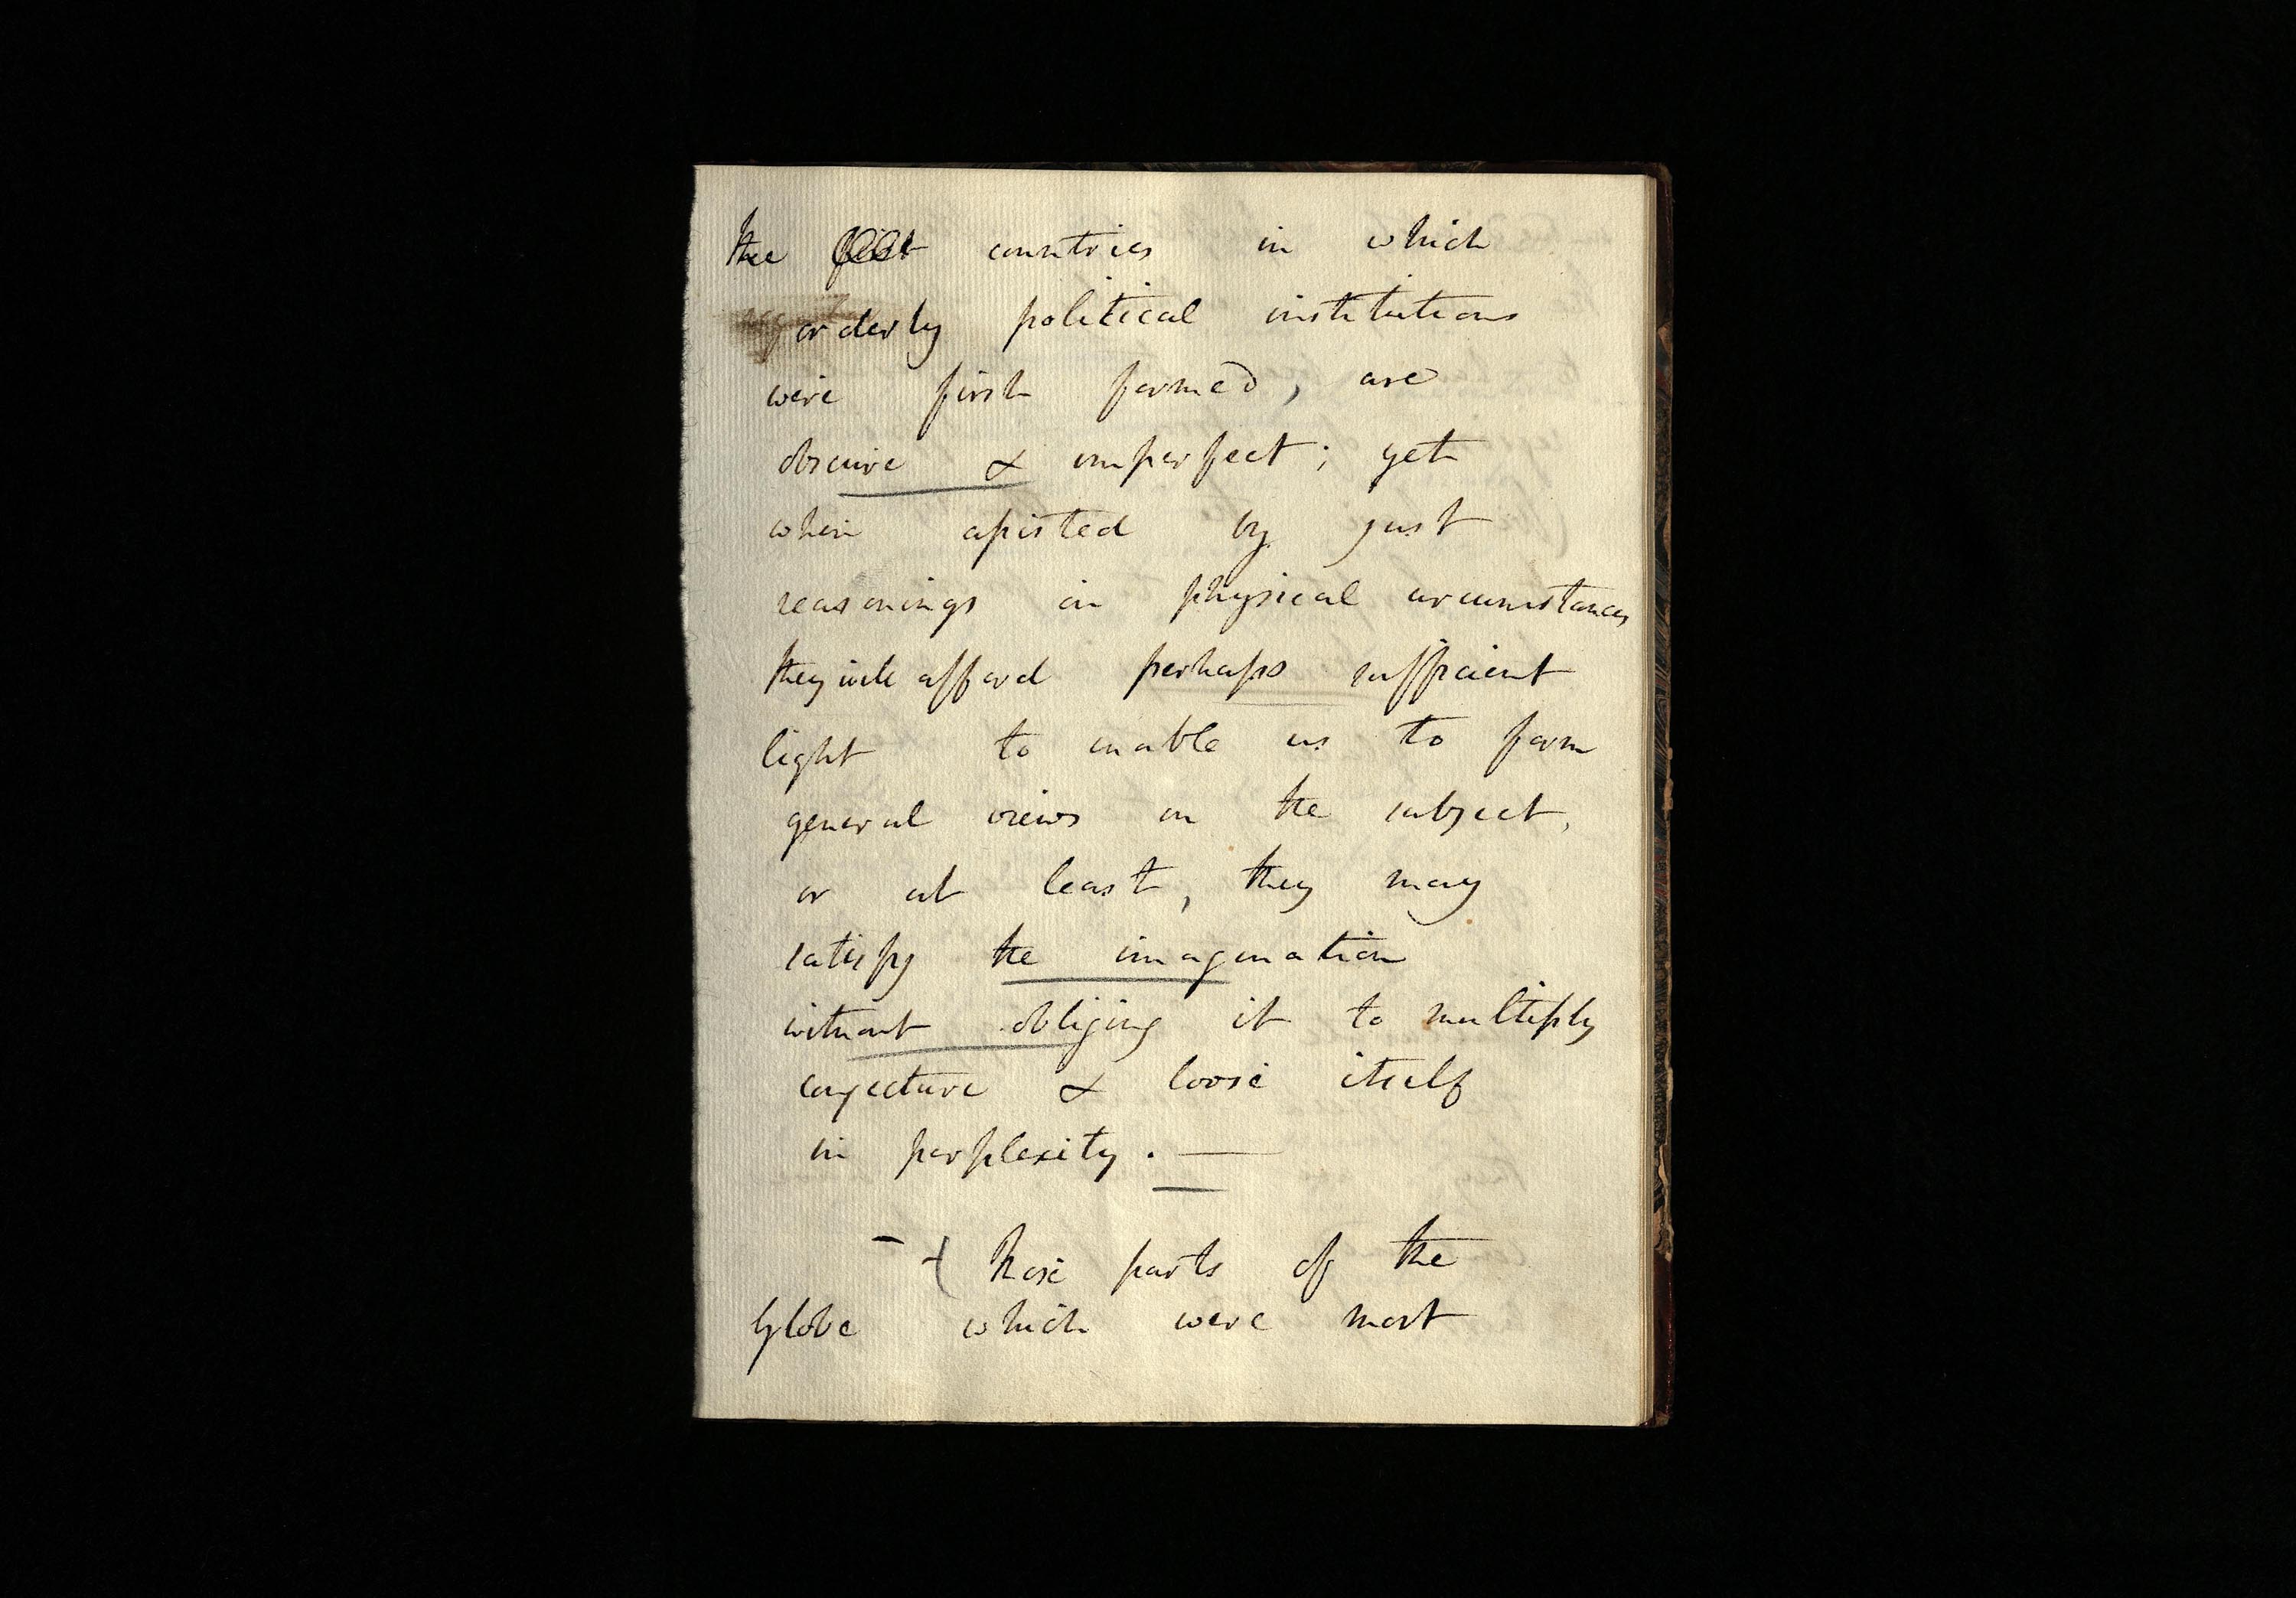 the countries in which
orderly political institutions
were first formed, are
obscure & imperfect; yet
when assisted by just
reasonings on physical circumstances
they will afford perhaps sufficient
light to enable us to form
general views on the subject,
or at least, they may
satisfy the imagination
without obliging it to multiply
conjecture & loose itself
in perplexity. —
– Those parts of the
Globe which were most